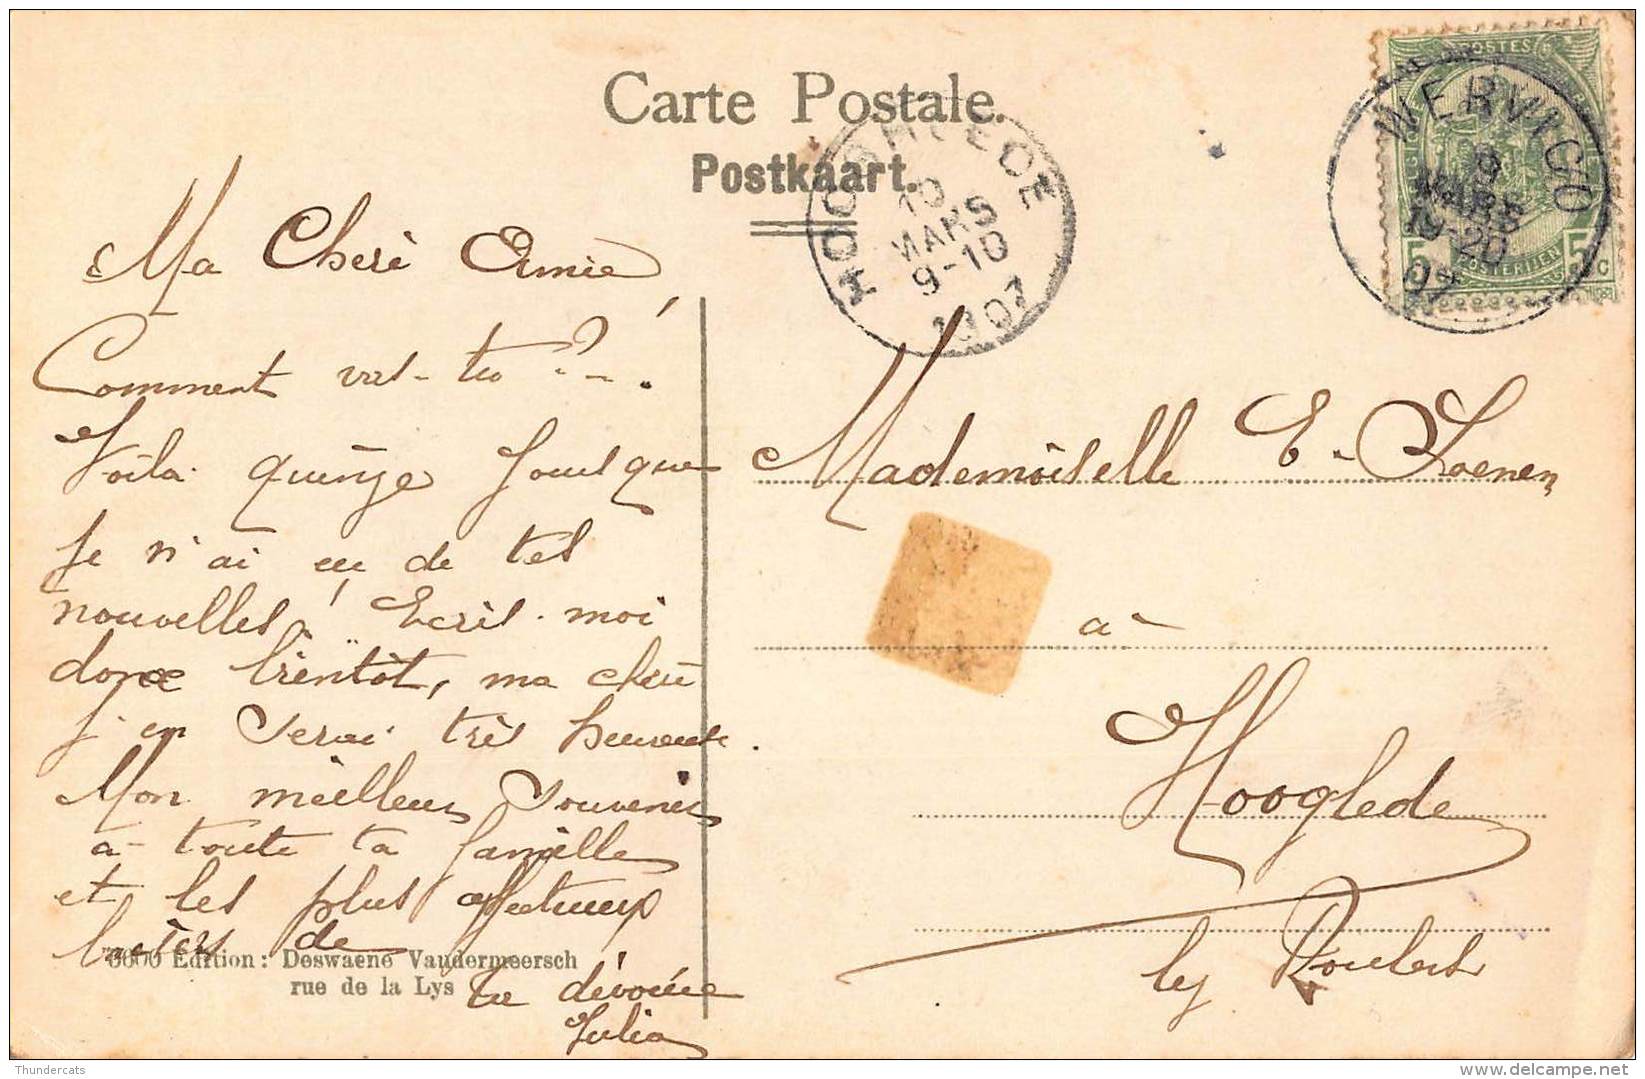 Carte Postale.
Postkaart.
HOOGHLEDE
10
MARS
9-10
1907
WERVICQ
9
MARS
19-20
07
POSTES
POSTERIJEN
5 5
C
Ma Cheri Amie,
Comment vas-tu ?
Voila quinze Jours que
Je n'ai eu de tes
nouvelles! Ecris-moi
donc bientôt, ma cheri
j'en serai très heureuse.
Mon meilleur Souvenir
à toute ta famille
et les plus affectueux
baisers de
Ta dévouée
Julia
Mademoiselle E. Loenen
à
Hooglede
by Roulers
6600 Edition: Deswaene Vandermeersch
rue de la Lys
Thundercats
delcampe.net